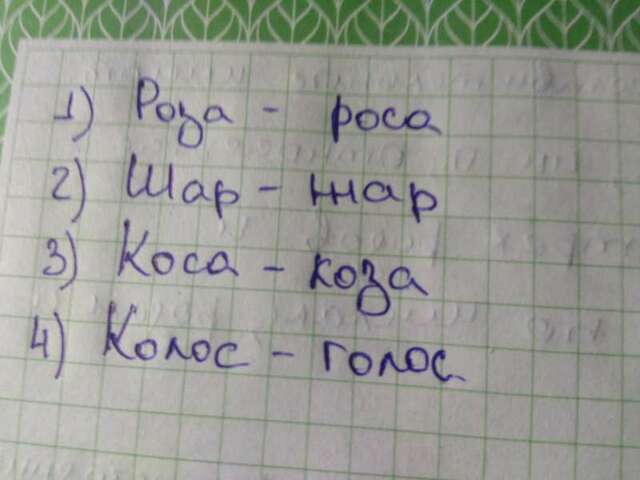 1) Роза - роса
2) Шар - жар
3) Коса - коза
4) Колос - голос